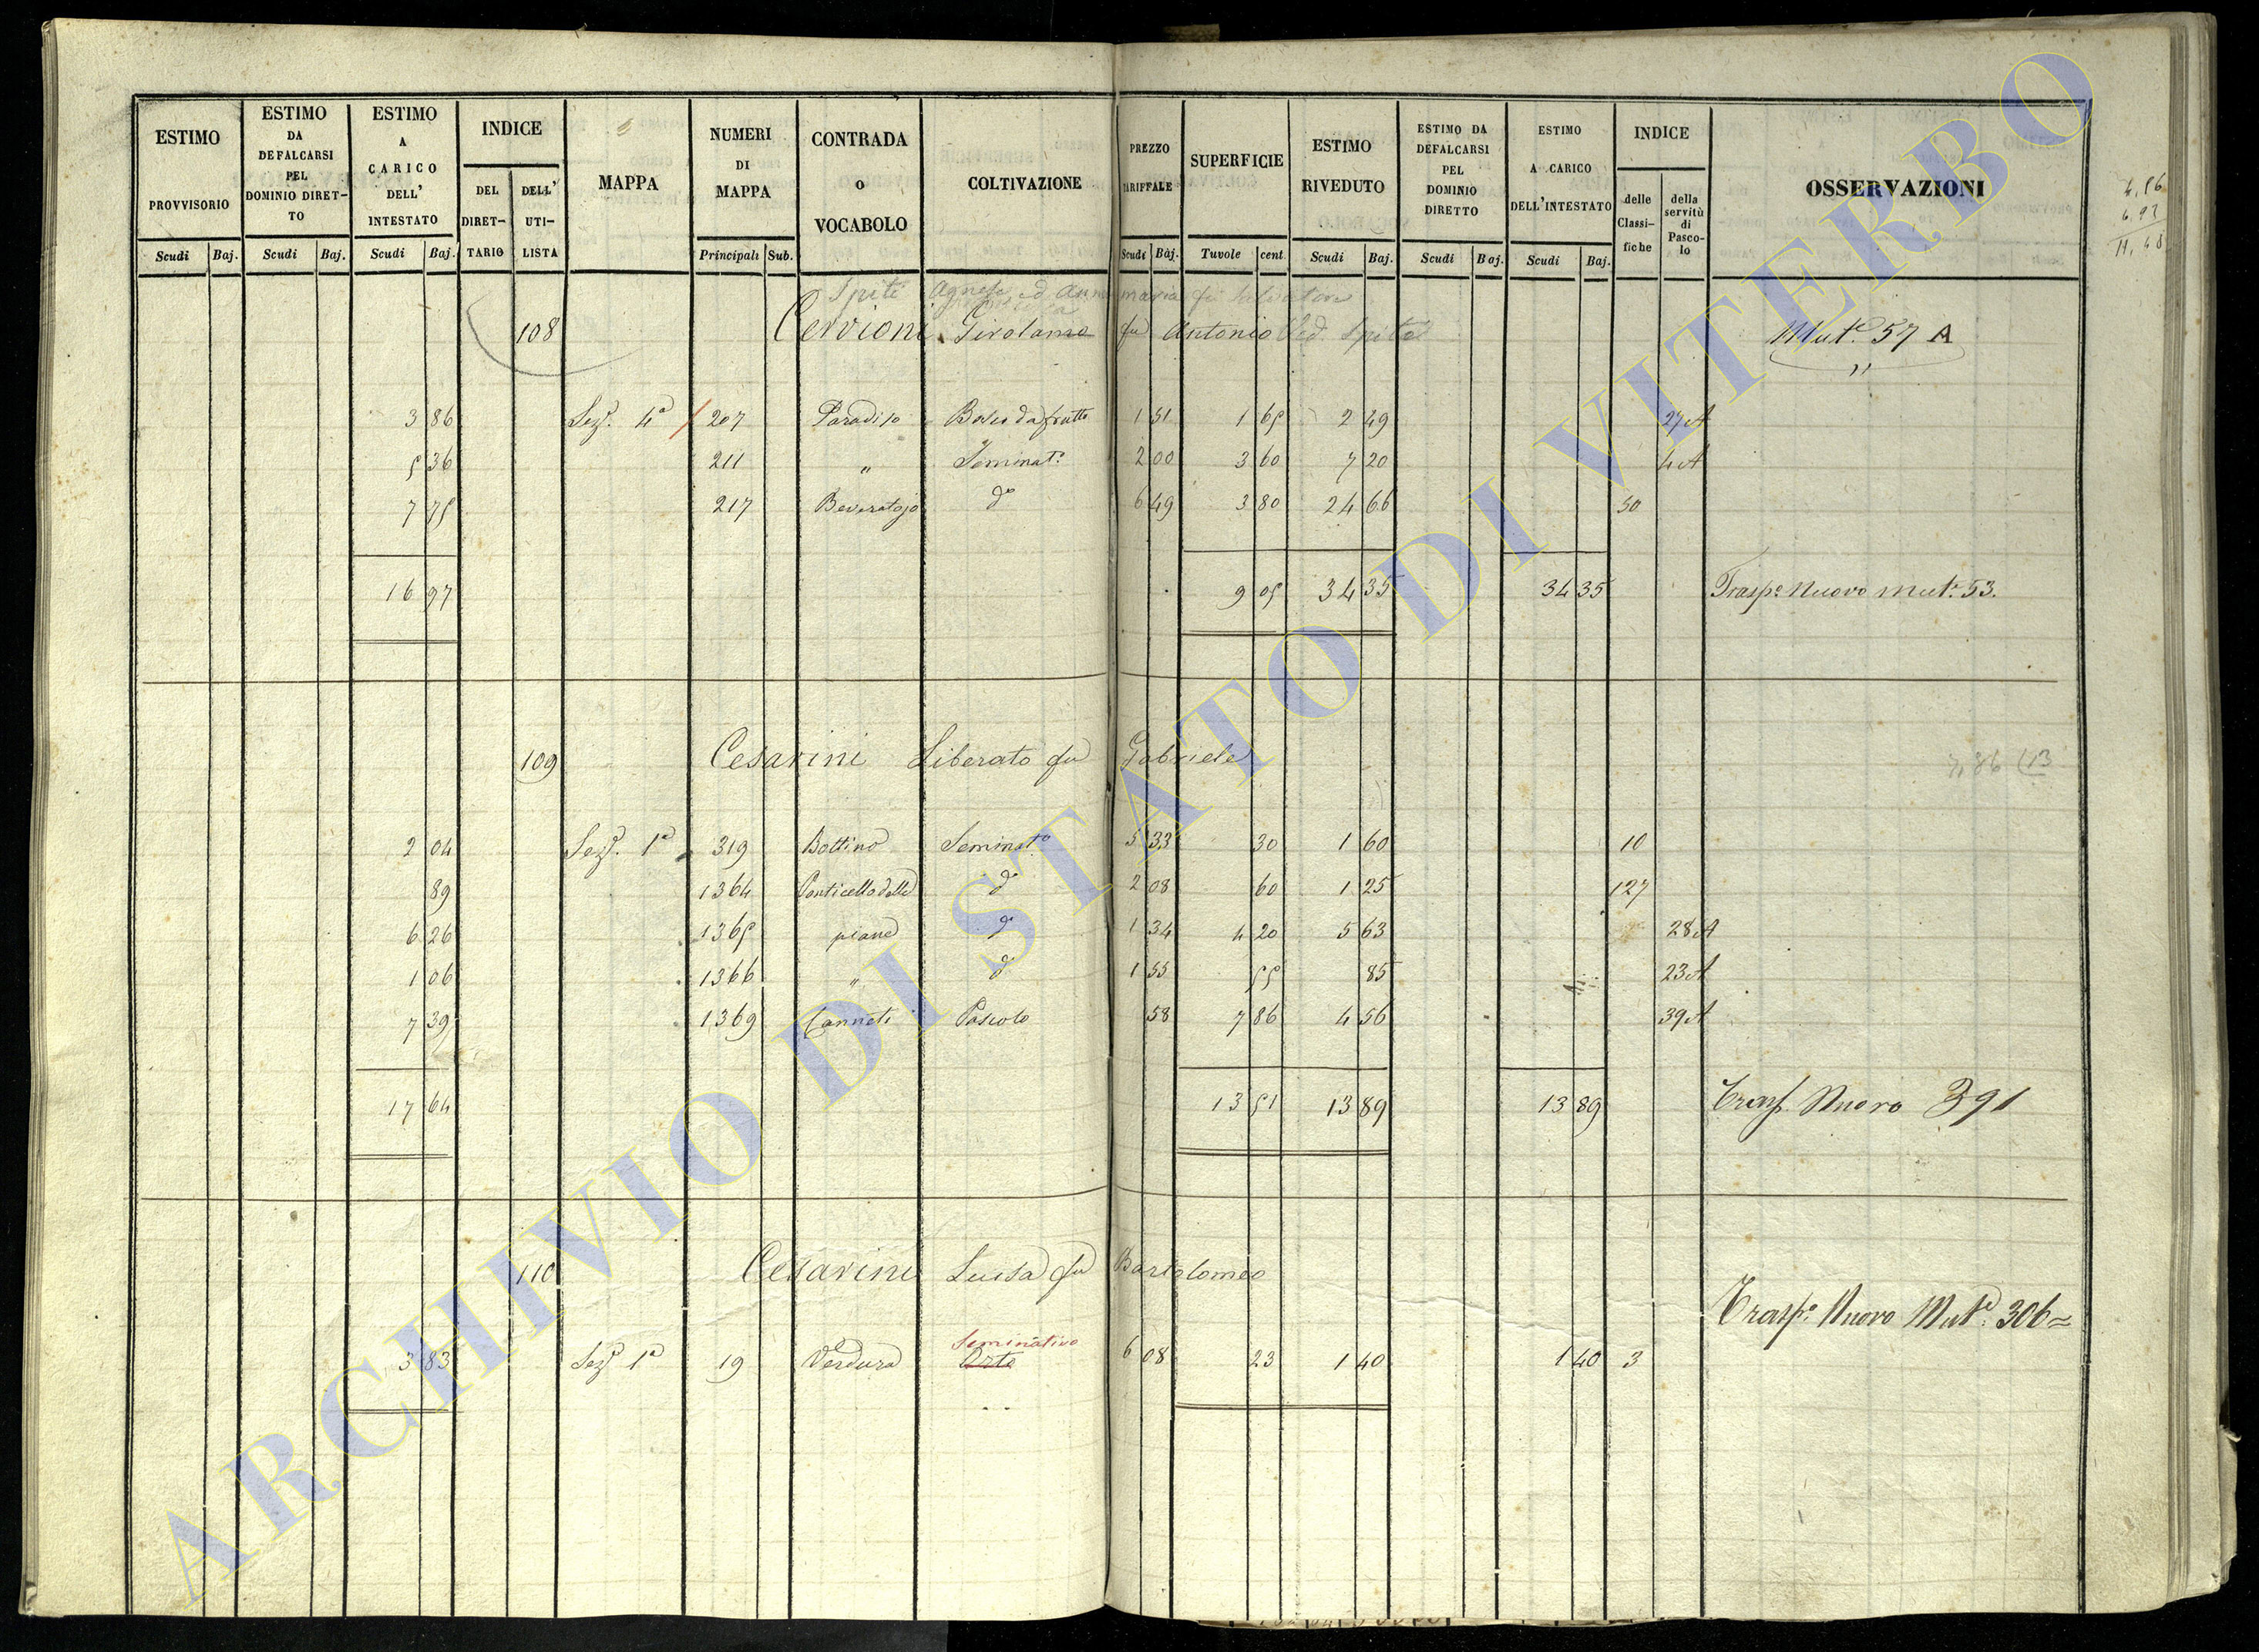 ESTIMO PROVVISORIO
ESTIMO DA DEFALCARSI PEL DOMINIO DIRET-TO
ESTIMO A CARICO DELL' INTESTATO
INDICE
DEL DIRET-TARIO
DELL' UTI-LISTA
MAPPA
NUMERI DI MAPPA
CONTRADA O VOCABOLO
COLTIVAZIONE
PREZZO TARIFFALE
SUPERFICIE
ESTIMO RIVEDUTO
ESTIMO DA DEFALCARSI PEL DOMINIO DIRETTO
ESTIMO A CARICO DELL'INTESTATO
INDICE
delle Classi-fiche
della servitù di Pasco-lo
OSSERVAZIONI
Scudi Baj. Scudi Baj. Scudi Baj. Principali Sub. Scudi Baj. Tavole cent. Scudi Baj. Scudi Baj. Scudi Baj.
Spiti Agnese ed Annamaria fu Salvatore
108 Cervioni Girolamo fu Antonio Ved. Spiti Mut.e 57 A
3 86 Sez.e 4a 207 Paradiso Bosco da frutto 1 51 1 65 2 49 27 A
5 36 211 " Seminat.o 2 00 3 60 7 20 4 A
7 75 217 Beveratojo do 6 49 3 80 24 66 50
16 97 9 05 34 35 34 35 Trasp.o Nuovo Mut.e 53.
109 Cesarini Liberato fu Gabriele
2 04 Sez.e 1a 319 Bottino Seminat.o 5 33 30 1 60 10
89 1364 Ponticello delle do 2 08 60 1 25 127
6 26 1365 piane do 1 34 4 20 5 63 28 A
1 06 1366 " do 1 55 55 85 23 A
7 39 1369 Canneti Pascolo 58 7 86 4 56 39 A
17 64 13 51 13 89 13 89 Trasp. Nuovo 391
110 Cesarini Luisa fu Bartolomeo
Trasp.o Nuovo Mut.e 306
Seminativo
3 83 Sez.e 1a 19 Verdura Orto 6 08 23 1 40 1 40 3
ARCHIVIO DI STATO DI VITERBO